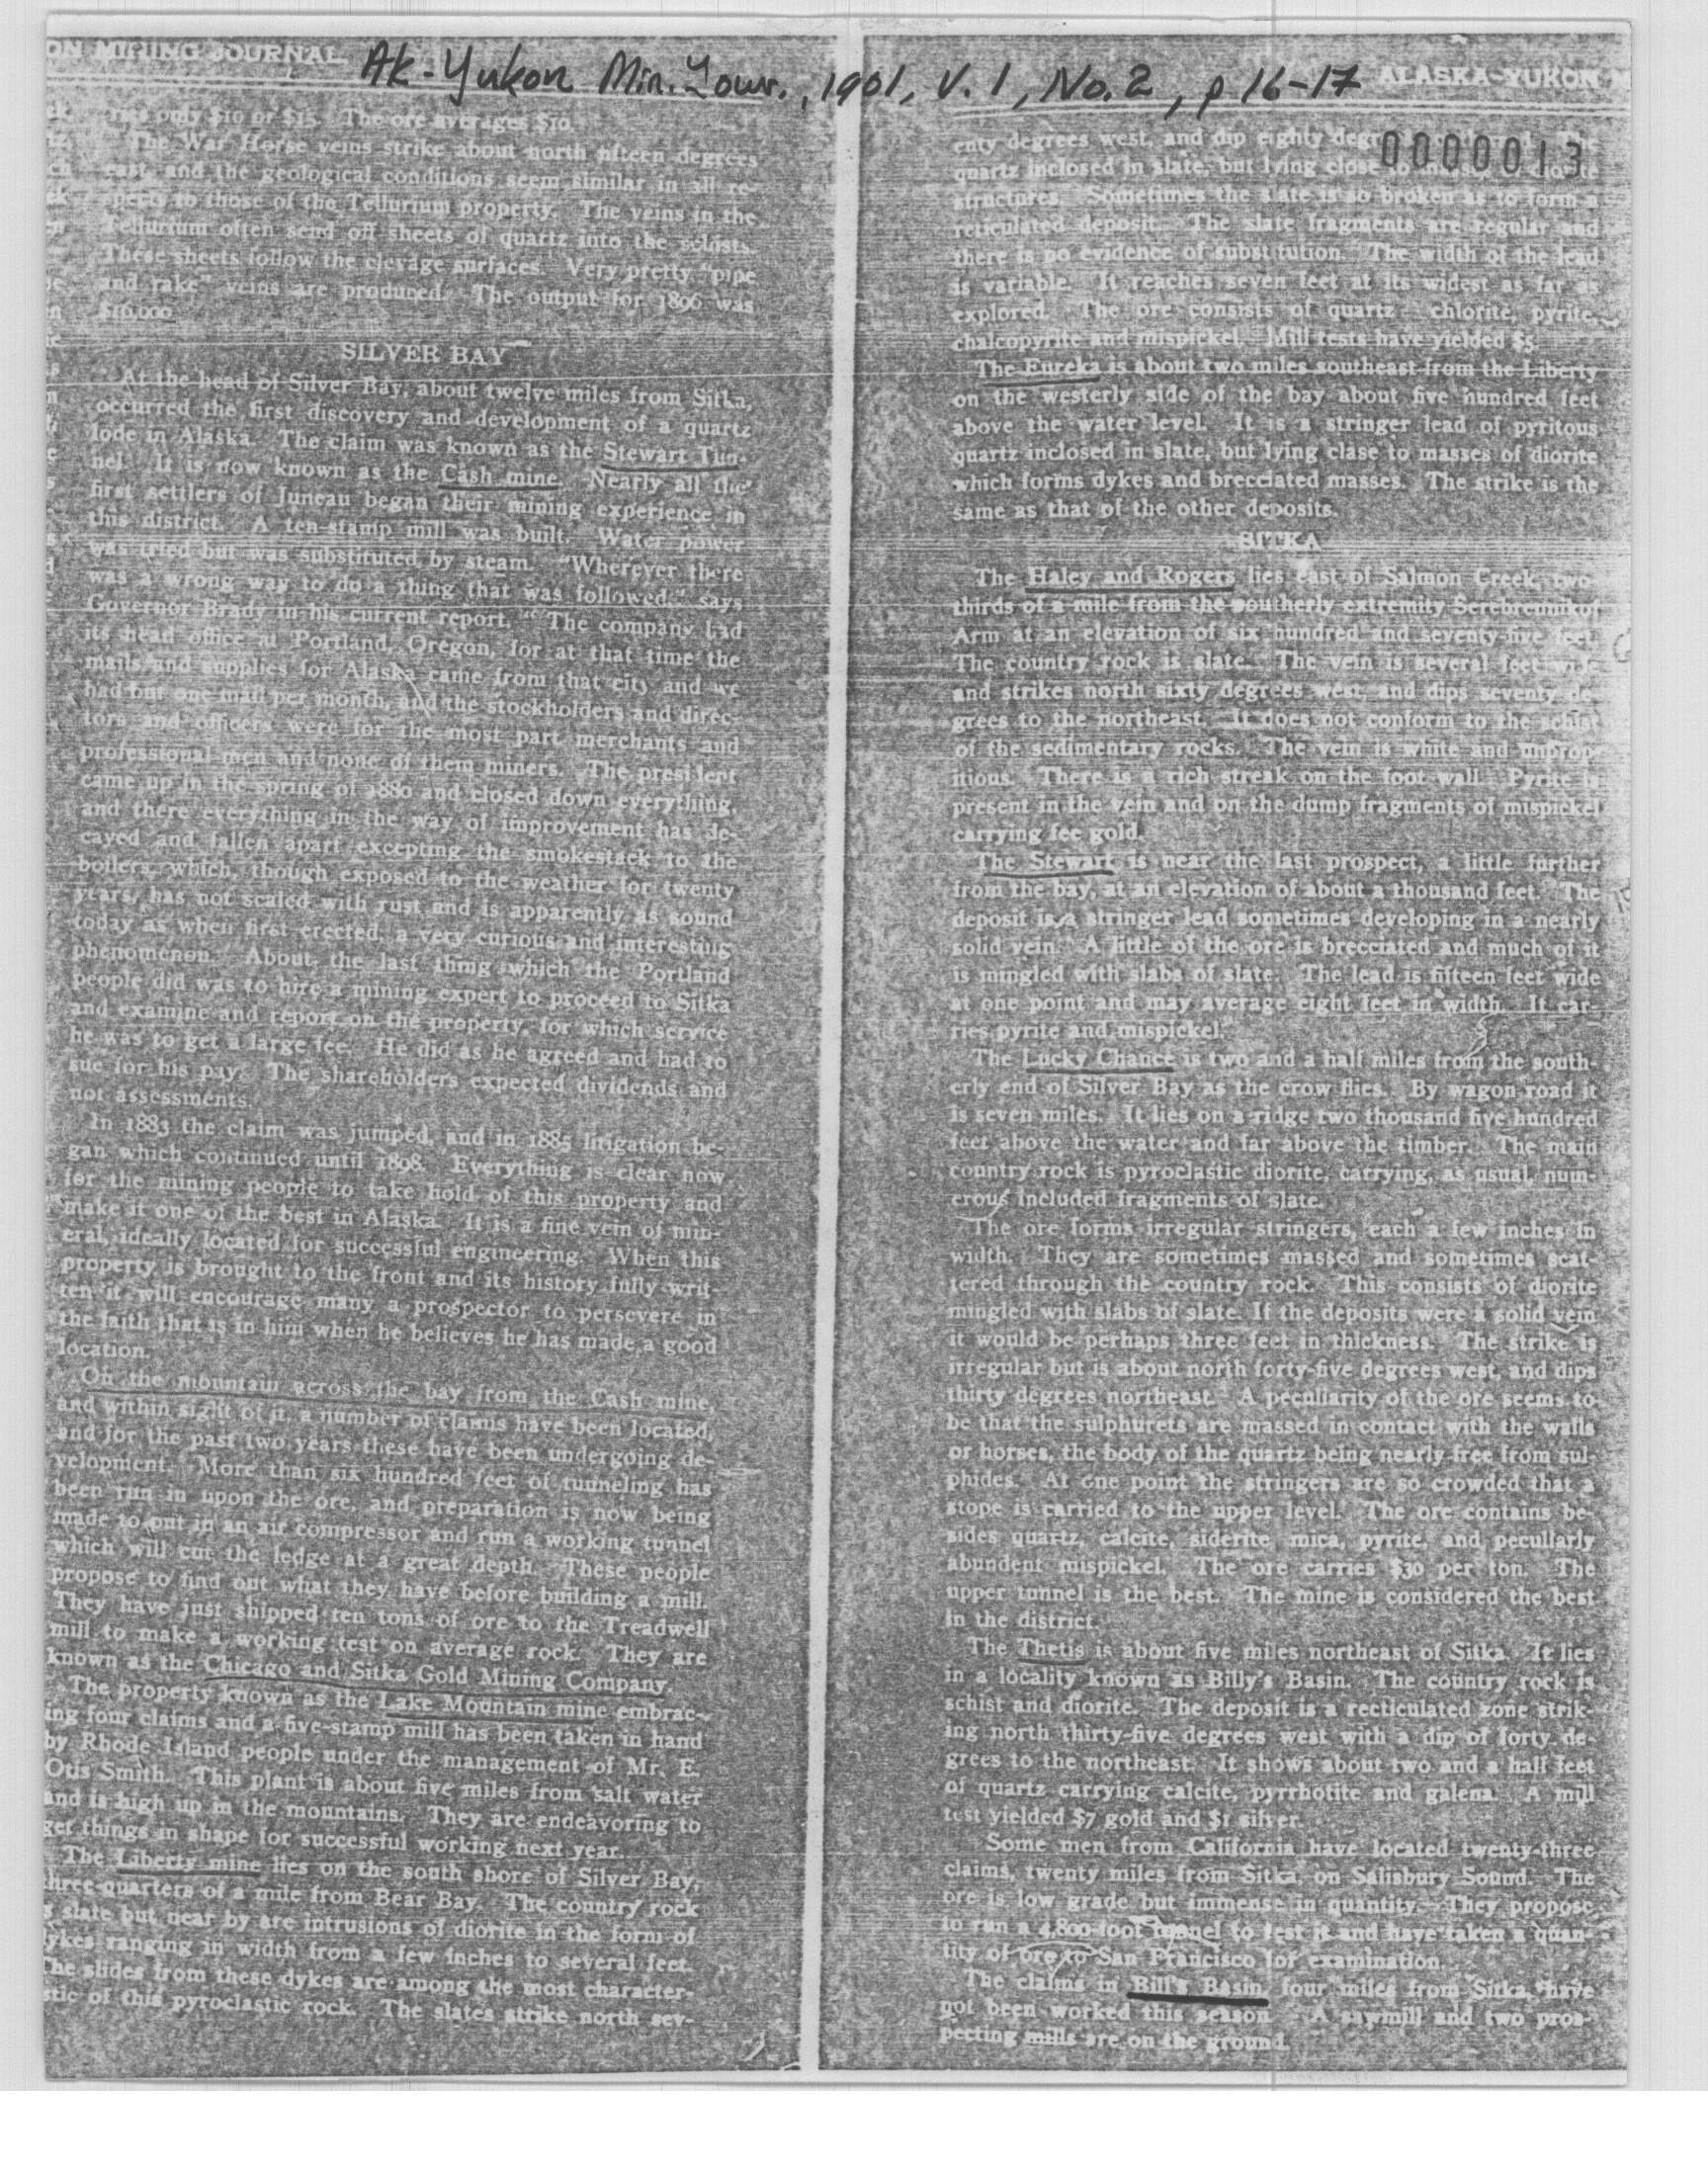 ON MINING JOURNAL
Ak-Yukon Min. Jour., 1901, V. 1, No. 2, p 16-17
only $10 or $15. The ore averages $10.
The War Horse veins strike about north fifteen degrees
east, and the geological conditions seem similar in all re-
spects to those of the Tellurium property. The veins in the
Tellurium often send off sheets of quartz into the schists.
These sheets follow the clevage surfaces. Very pretty "pipe
and rake" veins are produced. The output for 1896 was
$10,000.
SILVER BAY
At the head of Silver Bay, about twelve miles from Sitka,
occurred the first discovery and development of a quartz
lode in Alaska. The claim was known as the Stewart Tun-
nel. It is now known as the Cash mine. Nearly all the
first settlers of Juneau began their mining experience in
this district. A ten-stamp mill was built. Water power
was tried but was substituted by steam. "Wherever there
was a wrong way to do a thing that was followed," says
Governor Brady in his current report. "The company had
its head office at Portland, Oregon, for at that time the
mails and supplies for Alaska came from that city and we
had but one mail per month, and the stockholders and direc-
tors and officers were for the most part merchants and
professional men and none of them miners. The president
came up in the spring of 1880 and closed down everything,
and there everything in the way of improvement has de-
cayed and fallen apart excepting the smokestack to the
boilers, which, though exposed to the weather for twenty
years, has not scaled with rust and is apparently as sound
today as when first erected, a very curious and interesting
phenomenon. About the last thing which the Portland
people did was to hire a mining expert to proceed to Sitka
and examine and report on the property, for which service
he was to get a large fee. He did as he agreed and had to
sue for his pay. The shareholders expected dividends and
not assessments.
In 1883 the claim was jumped, and in 1885 litigation be-
gan which continued until 1898. Everything is clear now
for the mining people to take hold of this property and
make it one of the best in Alaska. It is a fine vein of min-
eral, ideally located for successful engineering. When this
property is brought to the front and its history fully writ-
ten it will encourage many a prospector to persevere in
the faith that is in him when he believes he has made a good
location.
On the mountain across the bay from the Cash mine,
and within sight of it, a number of claims have been located,
and for the past two years these have been undergoing de-
velopment. More than six hundred feet of tunneling has
been run in upon the ore, and preparation is now being
made to put in an air compressor and run a working tunnel
which will cut the ledge at a great depth. These people
propose to find out what they have before building a mill.
They have just shipped ten tons of ore to the Treadwell
mill to make a working test on average rock. They are
known as the Chicago and Sitka Gold Mining Company.
The property known as the Lake Mountain mine embrac-
ing four claims and a five-stamp mill has been taken in hand
by Rhode Island people under the management of Mr. E.
Otis Smith. This plant is about five miles from salt water
and is high up in the mountains. They are endeavoring to
get things in shape for successful working next year.
The Liberty mine lies on the south shore of Silver Bay,
three-quarters of a mile from Bear Bay. The country rock
s slate but near by are intrusions of diorite in the form of
ykes ranging in width from a few inches to several feet.
The slides from these dykes are among the most character-
stic of this pyroclastic rock. The slates strike north sev-
ALASKA-YUKON M
0000013
enty degrees west, and dip eighty degr
quartz inclosed in slate, but lying close to
structures. Sometimes the slate is so broken as to form a
reticulated deposit. The slate fragments are regular and
there is no evidence of substitution. The width of the lead
is variable. It reaches seven feet at its widest as far as
explored. The ore consists of quartz chlorite, pyrite,
chalcopyrite and mispickel. Mill tests have yielded $5.
The Eureka is about two miles southeast from the Liberty
on the westerly side of the bay about five hundred feet
above the water level. It is a stringer lead of pyritous
quartz inclosed in slate, but lying clase to masses of diorite
which forms dykes and brecciated masses. The strike is the
same as that of the other deposits.
SITKA
The Haley and Rogers lies east of Salmon Creek, two-
thirds of a mile from the southerly extremity Serebrennikof
Arm at an elevation of six hundred and seventy-five feet.
The country rock is slate. The vein is several feet wide
and strikes north sixty degrees west and dips seventy de-
grees to the northeast. It does not conform to the schist
of the sedimentary rocks. The vein is white and unprop-
itious. There is a rich streak on the foot wall. Pyrite is
present in the vein and on the dump fragments of mispickel
carrying fee gold.
The Stewart is near the last prospect, a little further
from the bay, at an elevation of about a thousand feet. The
deposit is a stringer lead sometimes developing in a nearly
solid vein. A little of the ore is brecciated and much of it
is mingled with slabs of slate. The lead is fifteen feet wide
at one point and may average eight feet in width. It car-
ries pyrite and mispickel.
The Lucky Chance is two and a half miles from the south-
erly end of Silver Bay as the crow flies. By wagon road it
is seven miles. It lies on a ridge two thousand five hundred
feet above the water and far above the timber. The main
country rock is pyroclastic diorite, carrying, as usual, num-
erous included fragments of slate.
The ore forms irregular stringers, each a few inches in
width. They are sometimes massed and sometimes scat-
tered through the country rock. This consists of diorite
mingled with slabs of slate. If the deposits were a solid vein
it would be perhaps three feet in thickness. The strike is
irregular but is about north forty-five degrees west, and dips
thirty degrees northeast. A peculiarity of the ore seems to
be that the sulphurets are massed in contact with the walls
or horses, the body of the quartz being nearly free from sul-
phides. At one point the stringers are so crowded that a
stope is carried to the upper level. The ore contains be-
sides quartz, calcite, siderite mica, pyrite, and peculiarly
abundent mispickel. The ore carries $30 per ton. The
upper tunnel is the best. The mine is considered the best
in the district.
The Thetis is about five miles northeast of Sitka. It lies
in a locality known as Billy's Basin. The country rock is
schist and diorite. The deposit is a recticulated zone strik-
ing north thirty-five degrees west with a dip of forty de-
grees to the northeast. It shows about two and a half feet
of quartz carrying calcite, pyrrhotite and galena. A mill
test yielded $7 gold and $1 silver.
Some men from California have located twenty-three
claims, twenty miles from Sitka, on Salisbury Sound. The
ore is low grade but immense in quantity. They propose
to run a 4,800-foot tunnel to test it and have taken a quan-
tity of ore to San Francisco for examination.
The claims in Bill's Basin, four miles from Sitka, have
not been worked this season. A sawmill and two pros-
pecting mills are on the ground.